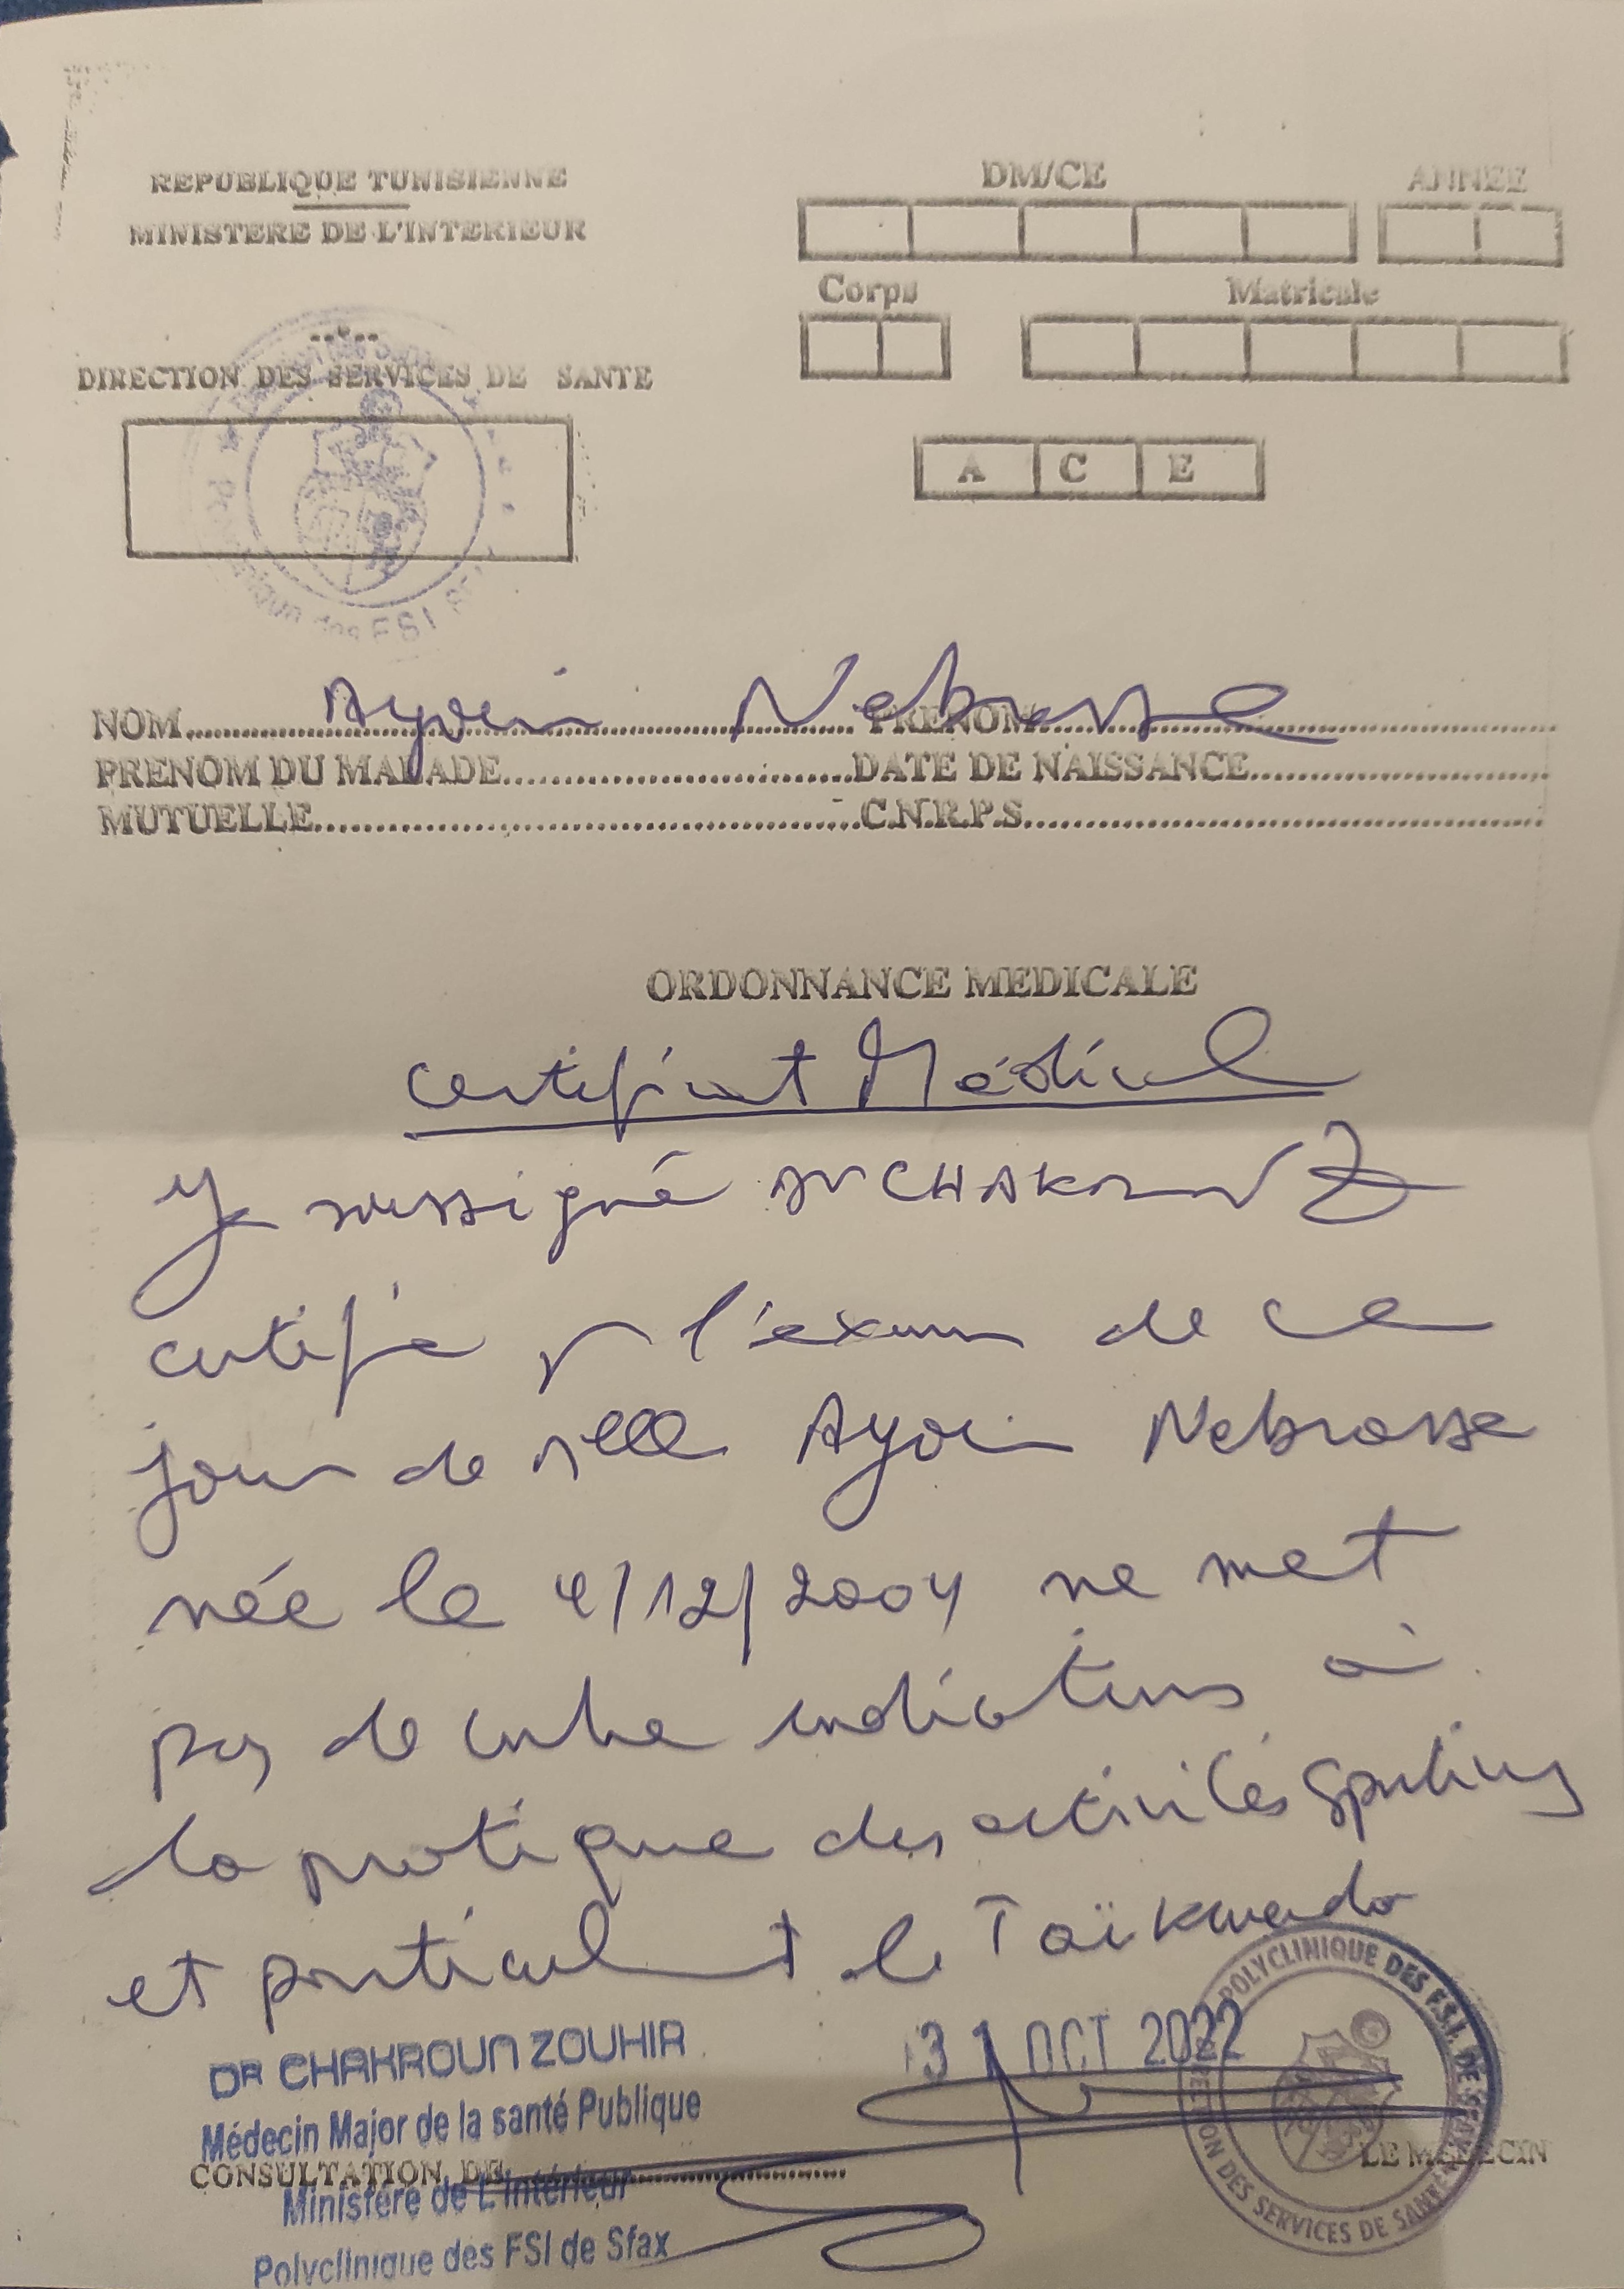 REPUBLIQUE TUNISIENNE
MINISTERE DE L'INTERIEUR
DIRECTION DES SERVICES DE SANTE
DM/CE ANNEE
Corps Matricule
A C E
NOM Ayoin Nebrasse PRENOM
PRENOM DU MALADE DATE DE NAISSANCE
MUTUELLE C.N.R.P.S
ORDONNANCE MEDICALE
Certificat Médical
Je soussigné Dr CHAKROUN Z
certifie q l'examen de ce
jour de Melle Ayoin Nebrasse
née le 4/12/2004 ne met
pas de contre indications à
la pratique des activités sportives
et particulièrement le Taïkwendo
DR CHAKROUN ZOUHIR
Médecin Major de la santé Publique
Ministère de L'Intérieur
Polyclinique des FSI de Sfax
31 OCT 2022
CONSULTATION DE
LE MEDECIN
POLYCLINIQUE DES F.S.I. DE SFAX
DIRECTION DES SERVICES DE SANTE